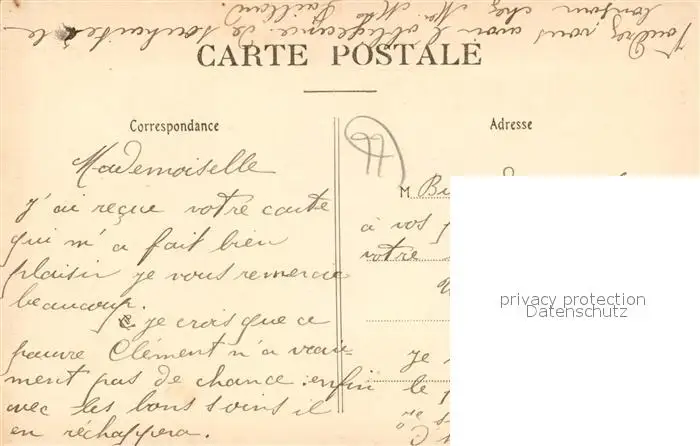 Voudrez vous avoir l'obligeance de souhaiter le
bonjour chez Mr. Mme
CARTE POSTALE
Correspondance
Adresse
Mademoiselle
J'ai reçue votre carte
qui m'a fait bien
plaisir je vous remercie
beaucoup.
je crois que ce
pauvre Clément n'a vrai=
ment pas de chance. enfin
avec les bons soins il
en réchappera.
M
à vos
votre
je
le
privacy protection
Datenschutz